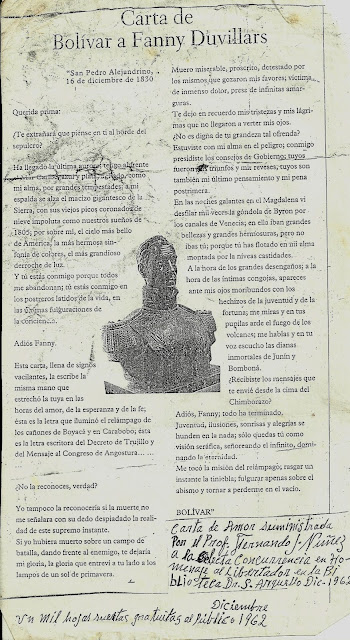 Carta de
Bolívar a Fanny Duvillars
"San Pedro Alejandrino,
16 de diciembre de 1830
Querida prima:
¿Te extrañará que piense en ti al borde del
sepulcro?
Ha llegado la última aurora: tengo al frente
el mar Caribe, azul y plata, agitado como
mi alma, por grandes tempestades; a mi
espalda se alza el macizo gigantesco de la
Sierra, con sus viejos picos coronados de
nieve impoluta como nuestros sueños de
1805; por sobre mí, el cielo más bello
de América, la más hermosa sin-
fonía de colores, el más grandioso
derroche de luz.
Y tú estás conmigo porque todos
me abandonan; tú estás conmigo en
los postreros latidos de la vida, en
las últimas fulguraciones de
la conciencia.
Adiós Fanny.
Esta carta, llena de signos
vacilantes, la escribe la
misma mano que
estrechó la tuya en las
horas del amor, de la esperanza y de la fe;
ésta es la letra que iluminó el relámpago de
los cañones de Boyacá y en Carabobo; ésta
es la letra escritora del Decreto de Trujillo y
del Mensaje al Congreso de Angostura......
¿No la reconoces, verdad?
Yo tampoco la reconocería si la muerte no
me señalara con su dedo despiadado la reali-
dad de este supremo instante.
Si yo hubiera muerto sobre un campo de
batalla, dando frente al enemigo, te dejaría
mi gloria, la gloria que entreví a tu lado a los
lampos de un sol de primavera.
Muero miserable, proscrito, detestado por
los mismos que gozaron mis favores; víctima
de inmenso dolor, presa de infinitas amar-
guras.
Te dejo en recuerdo mis tristezas y mis lágri-
mas que no llegaron a verter mis ojos.
¿No es digna de tu grandeza tal ofrenda?
Estuviste en mi alma en el peligro; conmigo
presidiste los consejos de Gobierno; tuyos
fueron mis triunfos y mis reveses; tuyos son
también mi último pensamiento y mi pena
postrimera.
En las noches galantes en el Magdalena vi
desfilar mil veces la góndola de Byron por
los canales de Venecia; en ella iban grandes
bellezas y grandes hermosuras, pero no
ibas tú; porque tú has flotado en mi alma
mostada por la níveas castidades.
A la hora de los grandes desengaños; a la
hora de las íntimas congojas, apareces
ante mis ojos moribundos con los
hechizos de la juventud y de la
fortuna; me miras y en tus
pupilas arde el fuego de los
volcanes; me hablas y en tu
voz escucho las dianas
inmortales de Junín y
Bomboná.
¿Recibiste los mensajes que
te envié desde la cima del
Chimborazo?
Adiós, Fanny; todo ha terminado,
Juventud, ilusiones, sonrisas y alegrías se
hunden en la nada; sólo quedas tú como
visión seráfica, señoreando el infinito, domi-
nando la eternidad.
Me tocó la misión del relámpago; rasgar un
instante la tiniebla; fulgurar apenas sobre el
abismo y tornar a perderme en el vacío.
BOLÍVAR"
Carta de Amor suministrada
Por el Prof. Fernando J. Núñez
a la Selecta Concurrencia en Ho-
menaje al Libertador en la Bi-
blioteca Dr. S. Arguello Dic-1962
Diciembre
Un mil hojas sueltas gratuitas al público 1962